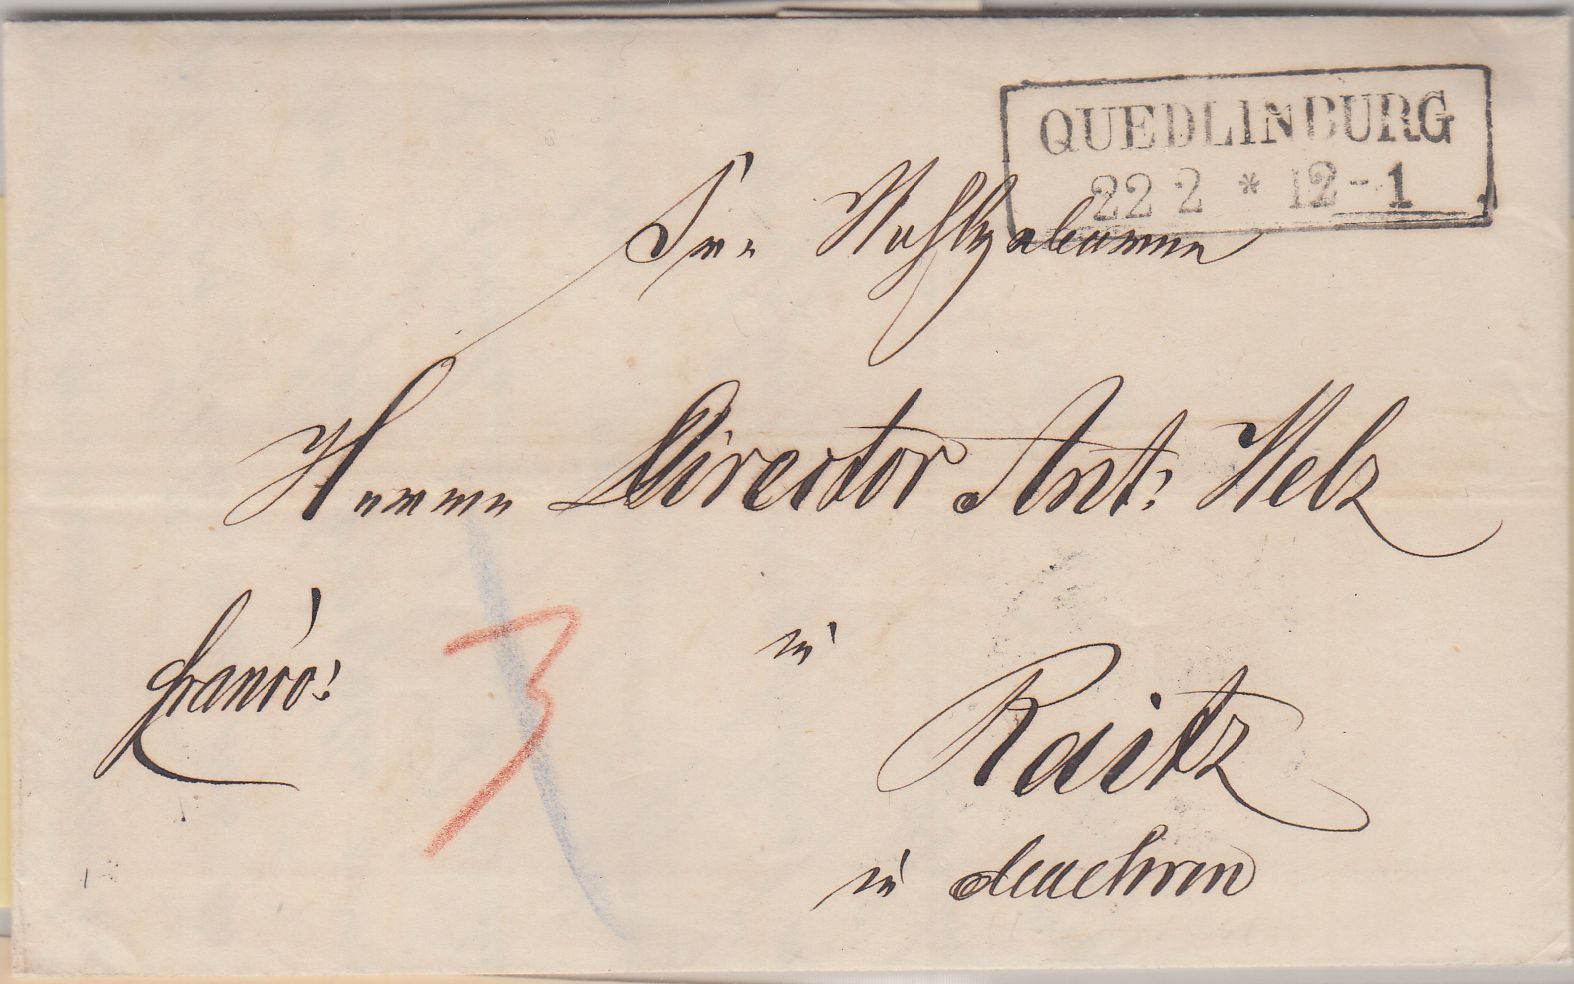 QUEDLINBURG
22 2 * 12-1
Sr. Wohlgeboren
Herrn Director Ant: Melz
franco!
3
in
Raitz
in Maehren